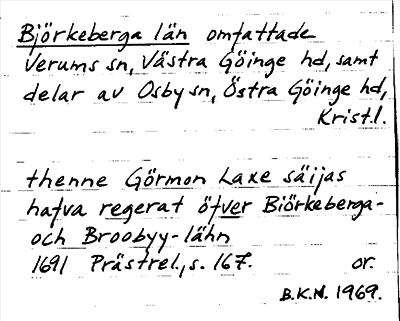 Björkeberga län omfattade
Verums sn, Västra Göinge hd, samt
delar av Osby sn, Östra Göinge hd,
Kristl.
thenne Görmon Laxe säijas
hafva regerat öfver Biörkeberga-
och Broobyy-lähn
1691 Prästrel., s. 167. or.
B.K.N. 1969.